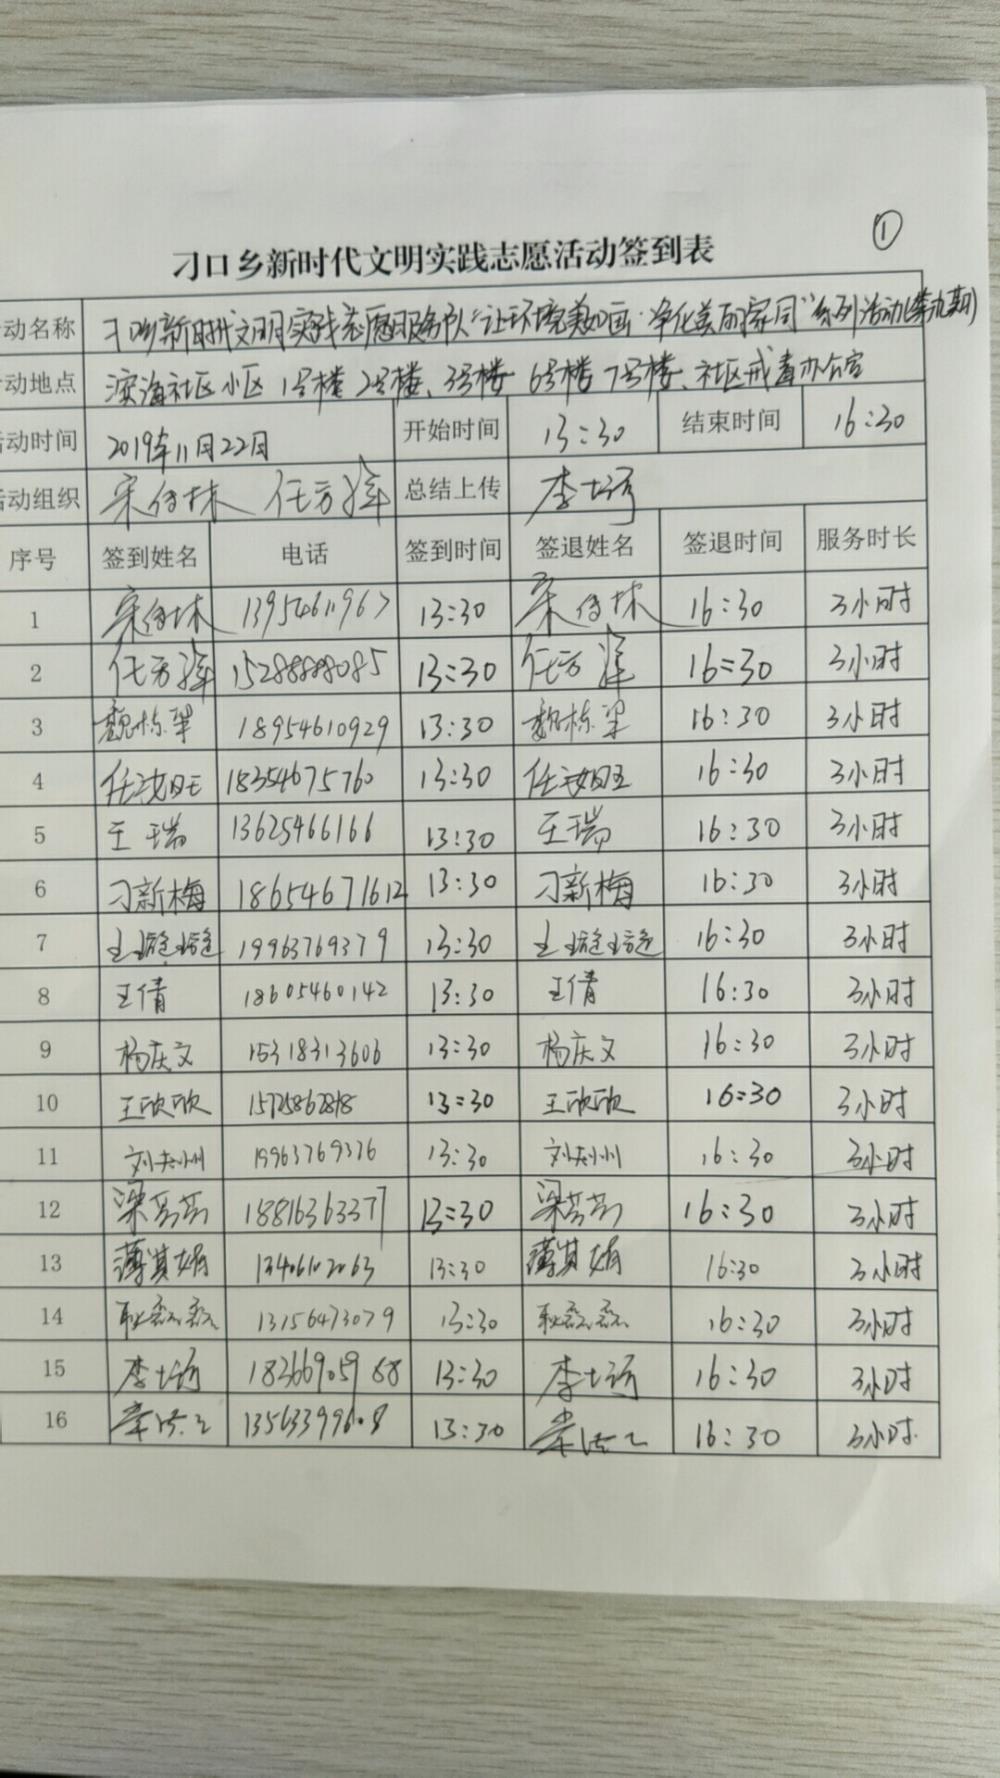 ①
刁口乡新时代文明实践志愿活动签到表
动名称 刁口乡新时代文明实践志愿服务队"让环境美如画·净化美丽家园"系列活动(第九期)
动地点 滨海社区小区 1号楼 2号楼、3号楼 6号楼 7号楼、社区戒毒办公室
动时间 2019年11月22日 开始时间 13:30 结束时间 16:30
活动组织 任方 总结上传 李
序号 签到姓名 电话 签到时间 签退姓名 签退时间 服务时长
1 13954611967 13:30 16:30 3小时
2 任方 15288888085 13:30 任方 16:30 3小时
3 魏栋梁 18954610929 13:30 魏栋梁 16:30 3小时
4 任 18354675760 13:30 任 16:30 3小时
5 王瑞 13625466166 13:30 王瑞 16:30 3小时
6 刁新梅 18654671612 13:30 刁新梅 16:30 3小时
7 王 19963769379 13:30 王 16:30 3小时
8 王倩 18605460142 13:30 王倩 16:30 3小时
9 杨庆文 15318313606 13:30 杨庆文 16:30 3小时
10 王欣欣 13:30 王欣欣 16:30 3小时
11 刘 19963769376 13:30 刘 16:30 3小时
12 梁芳芳 18816363377 13:30 梁芳芳 16:30 3小时
13 薄其娟 13406102063 13:30 薄其娟 16:30 3小时
14 耿 13156473079 13:30 耿 16:30 3小时
15 李 18366905988 13:30 李 16:30 3小时
16 13563399608 13:30 16:30 3小时